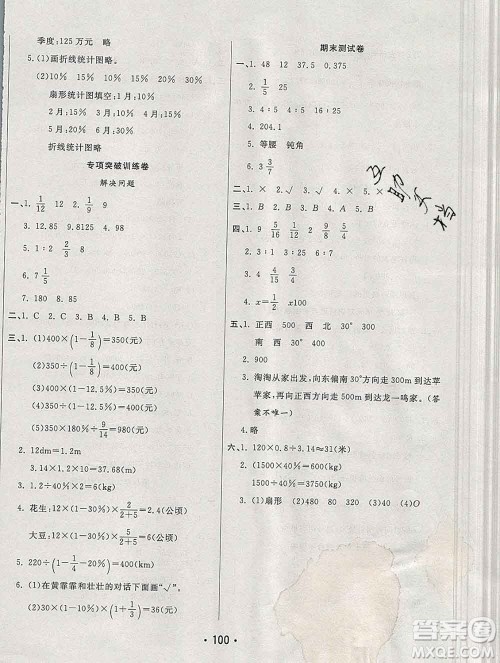 季度：125 万元　略
5. (1)画折线统计图略。
(2)10％　10％　15％　30％　20％　15％
扇形统计图填空：1 月：10％
2 月：10％　3 月：15％　4 月：30％
5 月：20％　6 月：15％
折线统计图略
专项突破训练卷
解决问题
一、1. 1/12　12　1/9　9
4. 9.88　9.8112　0.9125　98
5. 1∶2　2/3　8
6. 7 1/2
7. 180　8. 85
二、1. C　2. A　3. B　4. B　5. A　6. B
三、1. (1)400×(1−1/8)=350(元)
(2)400×(1−12.5％)=350(元)
(3)400×(1−12.5％)=350(元)
(4)400×(1−1/8)=350(元)
(5)350×180％÷9/14=980(元)
2. 12dm=1.2m
3.14×(1.2÷2)×2=
3. 1.2÷20％×2=6(kg)
4. 花生：12×(1−30％)×2/2+5=2.4(公顷)
大豆：12×(1−30％)×5/2+5=6(公顷)
5. 220÷(1−1/4−20％)=400(km)
6. (1)在黄霏霏和壮壮的对话下面画“√”。
(2)30×(1−10％)×(1+1/3)=36(元)
期末测试卷
一、1. 48　12　37.5　0.375
2. 1/5
3. 4∶5　1∶4　5∶8
4. 204.1
5. 等腰　钝角
6. 3 3/7
二、1. ×　2. √　3. ×　4. ×　5. ×
三、1. B　2. A　3. C　4. A　5. B
四、1. 9　5/16　8/15　1∶16　27
2. 30　1/4　9/14
3. 18.4　9　0　8
4. x=1/2　x100
五、1. 正西　500　南　30°　300
正西　400　南　30°　400
2. 900
3. 淘淘从家出发，向东偏南方向走 300m 到达苹
苹家，再向正西方向走 500m 到达龙一鸣家。(答
案不唯一)
4. 略
六、1. 120×0.8÷3.14≈31(米)
2. (1)1500×40％=600(kg)
(2)(1500×40％)÷60％=1000(kg)
3. (1)扇形　(2)480　80　320　(3)40　(4)O
• 100 •
答案圈
MXQE.COM